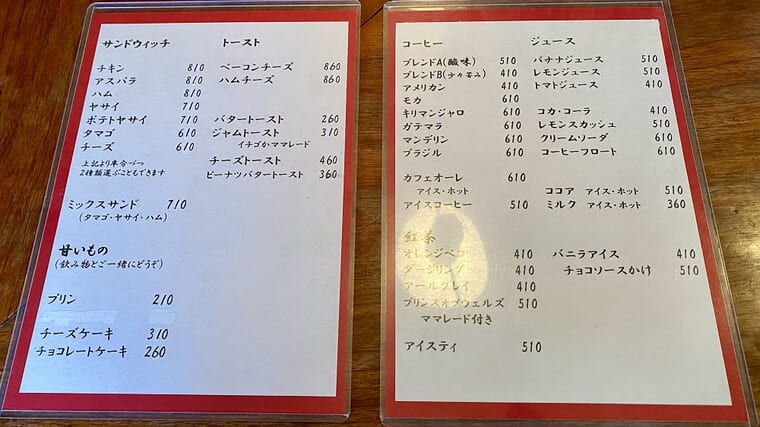 サンドウィッチ
チキン 810
アスパラ 810
ハム 810
ヤサイ 710
ポテトヤサイ 710
タマゴ 610
チーズ 610
上記より半分づつ
2種類選ぶこともできます
ミックスサンド 710
(タマゴ・ヤサイ・ハム)
甘いもの
(飲み物とご一緒にどうぞ)
プリン 210
チーズケーキ 310
チョコレートケーキ 260
トースト
ベーコンチーズ 860
ハムチーズ 860
バタートースト 260
ジャムトースト 310
イチゴかママレード
チーズトースト 460
ピーナツバタートースト 360
コーヒー
ブレンドA(酸味) 510
ブレンドB(少々苦み) 410
アメリカン 410
モカ 610
キリマンジャロ 610
ガテマラ 610
マンデリン 610
ブラジル 610
カフェオーレ 610
アイス・ホット
アイスコーヒー 510
紅茶
オレンジペコ 410
ダージリング 410
アールグレイ 410
プリンスオブウェルズ 510
ママレード付き
アイスティ 510
ジュース
バナナジュース 510
レモンジュース 510
トマトジュース 410
コカ・コーラ 410
レモンスカッシュ 510
クリームソーダ 610
コーヒーフロート 610
ココア アイス・ホット 510
ミルク アイス・ホット 360
バニラアイス 410
チョコソースかけ 510